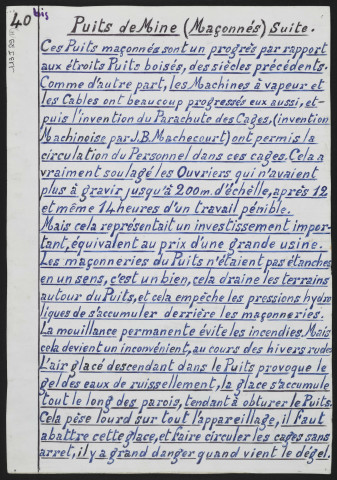 40 bis
Puits de Mine (Maçonnés) Suite.
Ces Puits maçonnés sont un progrès par rapport
aux étroits Puits boisés, des siècles précédents.
Comme d'autre part, les Machines à vapeur et
les Cables ont beaucoup progressés eux aussi, et-
puis l'invention du Parachute des Cages, (invention
Machinoise par J.B. Machecourt) ont permis la
circulation du Personnel dans ces cages. Cela a
vraiment soulagé les Ouvriers qui n'avaient
plus à gravir jusqu'à 200m. d'échelle, après 12
et même 14 heures d'un travail pénible.
Mais cela représentait un investissement impor-
tant, équivalent au prix d'une grande usine.
Les maçonneries du Puits n'étaient pas étanches
en un sens, c'est un bien, cela draine les terrains
autour du Puits, et cela empêche les pressions hydro
liques de s'accumuler derrière les maçonneries.
La mouillance permanente évite les incendies. Mais
cela devient un inconvénient, au cours des hivers rudes
L'air glacé descendant dans le Puits provoque le
gel des eaux de ruissellement, la glace s'accumule
tout le long des parois, tendant à obturer le Puits.
Cela pèse lourd sur tout l'appareillage, il faut
abattre cette glace, et faire circuler les cages sans
arret, il y a grand danger quand vient le dégel.